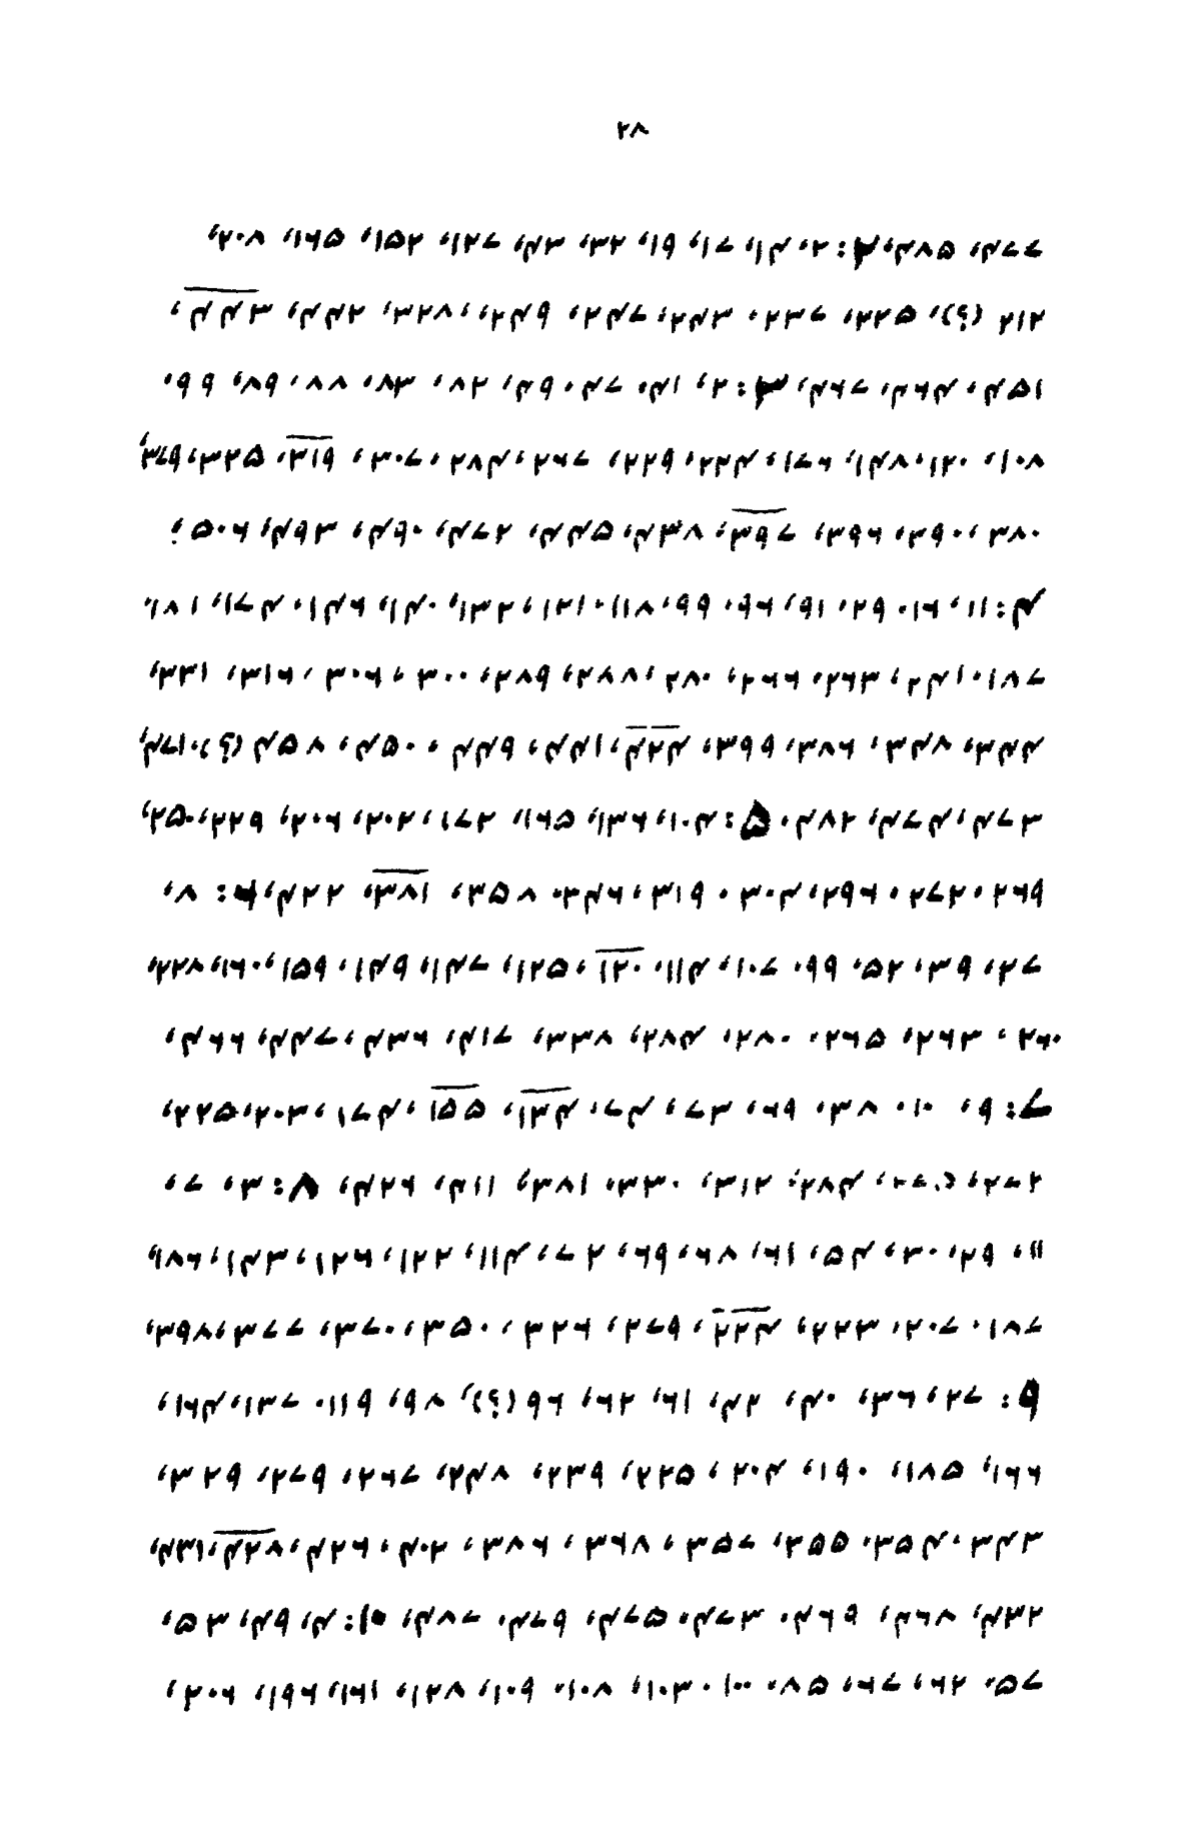 ۲۸
۴۷۷، ۴۸۵، ۲: ۲، ۱۴، ۱۷، ۱۹، ۳۲، ۴۳، ۱۲۷، ۱۵۲، ۱۶۵، ۲۰۸،
۲۱۲ (؟)، ۲۲۵، ۲۳۷، ۲۴۳، ۲۴۷، ۲۴۹، ۳۲۸، ۴۴۲، ۴۴۳،
۴۵۱، ۴۶۴، ۴۶۷، ۳: ۲، ۴۱، ۴۷، ۴۹، ۸۲، ۸۳، ۸۸، ۸۹، ۹۹،
۱۰۸، ۱۲۰، ۱۴۸، ۱۷۶، ۲۲۴، ۲۲۹، ۲۶۷، ۲۸۴، ۳۰۷، ۳۱۹، ۳۲۵، ۳۷۹،
۳۸۰، ۳۹۰، ۳۹۶، ۳۹۷، ۴۳۸، ۴۴۵، ۴۷۲، ۴۹۰، ۴۹۳، ۵۰۶،
۴: ۱۱، ۱۶، ۲۹، ۹۱، ۹۶، ۹۹، ۱۱۸، ۱۲۱، ۱۳۲، ۱۴۰، ۱۴۶، ۱۷۴، ۱۸۱،
۱۸۷، ۲۴۱، ۲۶۳، ۲۶۶، ۲۸۰، ۲۸۸، ۲۸۹، ۳۰۰، ۳۰۶، ۳۱۶، ۳۳۱،
۳۴۴، ۳۴۸، ۳۸۶، ۳۹۹، ۴۲۴، ۴۴۱، ۴۴۹، ۴۵۰، ۴۵۸ (؟)، ۴۷۱،
۴۷۳، ۴۷۴، ۴۸۲، ۵: ۱۰۴، ۱۳۶، ۱۶۵، ۱۷۲، ۲۰۲، ۲۰۶، ۲۲۹، ۲۵۰،
۲۶۹، ۲۷۲، ۲۹۶، ۳۰۴، ۳۱۹، ۳۴۶، ۳۵۸، ۳۸۱، ۴۲۲، ۶: ۸،
۲۷، ۳۹، ۵۲، ۹۹، ۱۰۷، ۱۱۴، ۱۲۰، ۱۲۵، ۱۴۷، ۱۴۹، ۱۵۹، ۱۶۰، ۲۲۸،
۲۶۰، ۲۶۳، ۲۶۵، ۲۸۰، ۲۸۴، ۳۳۸، ۴۱۷، ۴۳۶، ۴۴۷، ۴۶۶،
۷: ۹، ۱۰، ۳۸، ۶۹، ۷۳، ۷۴، ۱۳۴، ۱۵۵، ۱۷۴، ۲۰۳، ۲۲۵،
۲۷۲، ۲۸۴، ۳۱۲، ۳۳۰، ۳۸۱، ۴۱۱، ۴۲۶، ۸: ۳، ۷،
۱۱، ۲۹، ۳۰، ۵۴، ۶۱، ۶۸، ۶۹، ۷۲، ۱۱۴، ۱۲۲، ۱۲۶، ۱۴۳، ۱۸۶،
۱۸۷، ۲۰۷، ۲۲۳، ۲۲۴، ۲۷۹، ۳۲۶، ۳۵۰، ۳۷۰، ۳۷۷، ۳۹۸،
۹: ۲۷، ۳۶، ۴۰، ۴۲، ۶۱، ۶۲، ۹۶ (؟)، ۹۸، ۱۱۹، ۱۳۷، ۱۶۴،
۱۶۶، ۱۸۵، ۱۹۰، ۲۰۴، ۲۲۵، ۲۳۹، ۲۴۸، ۲۶۷، ۲۷۹، ۳۲۹،
۳۴۳، ۳۵۴، ۳۵۵، ۳۵۷، ۳۶۸، ۳۸۶، ۴۰۲، ۴۲۶، ۴۲۷، ۴۳۱،
۴۳۲، ۴۶۸، ۴۶۹، ۴۷۳، ۴۷۵، ۴۷۹، ۴۸۷، ۱۰: ۴، ۴۹، ۵۳،
۵۷، ۶۲، ۶۷، ۸۵، ۱۰۰، ۱۰۳، ۱۰۸، ۱۰۹، ۱۲۸، ۱۶۱، ۱۹۶، ۲۰۶،